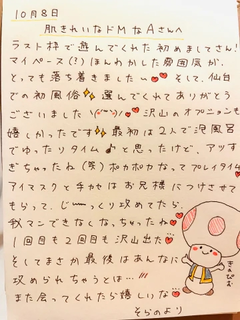 10月8日
肌きれいなドMなAさんへ
ラスト枠で遊んでくれた初めましてさん!
マイペース(?)ほんわかした雰囲気が、
とっても落ち着きました〜❤❤ そして、仙台
での初風俗✨選んでくれてありがとう
ございました\(^^)/❤ 沢山のオプションも
嬉しかったです❤❤ 最初は2人で泡風呂
でゆったりタイム♪と思ったけど、アツす
ぎちゃったね(笑)ポカポカなってプレイタイム❤
アイマスクと手かせはお兄様につけさせて
もらって、じ〜っくり攻めてたら、
我マンできなくなっちゃったね❤
1回目も2回目も沢山出た❤
そしてまさか最後はあんなに
攻められちゃうとは…///
また会ってくれたら嬉しいな…❤❤
そらのより
きのぴお